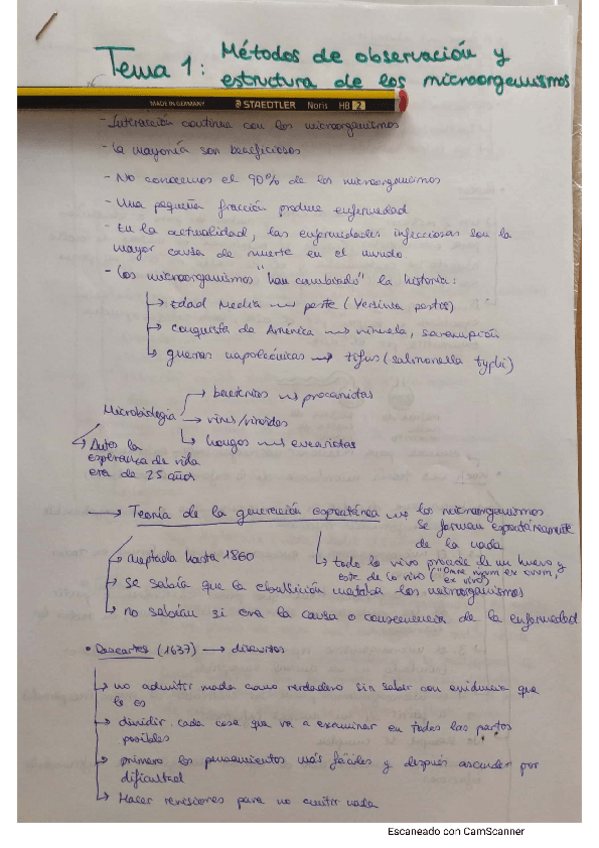 Tema 1: Métodos de observación y
estructura de los microorganismos
MADE IN GERMANY STAEDTLER Noris HB 2
- Interacción continua con los microorganismos
- La mayoría son beneficiosos
- No conocemos el 90% de los microorganismos
- Una pequeña fracción produce enfermedad
- En la actualidad, las enfermedades infecciosas son la
mayor causa de muerte en el mundo
- Los microorganismos "han cambiado" la historia:
Edad Media → peste (Yersinia pestis)
conquista de América → viruela, sarampión
guerras napoleónicas → tifus (salmonella typhi)
Microbiología
bacterias → procariotas
virus/viroides
hongos → eucariotas
Antes la
esperanza de vida
era de 25 años
→ Teoría de la generación espontánea → los microorganismos
se forman espontáneamente
de la nada
aceptada hasta 1860
todo lo vivo procede de un huevo y
este de lo vivo ("Omne vivum ex ovum,
ex vivo)
se sabía que la ebullición mataba los microorganismos
no sabían si era la causa o consecuencia de la enfermedad
• Descartes (1637) → discursos
no admitir nada como verdadero sin saber con evidencia que
lo es
dividir cada cosa que va a examinar en todas las partes
posibles
primero los pensamientos más fáciles y después ascender por
dificultad
Hacer revisiones para no omitir nada
Escaneado con CamScanner